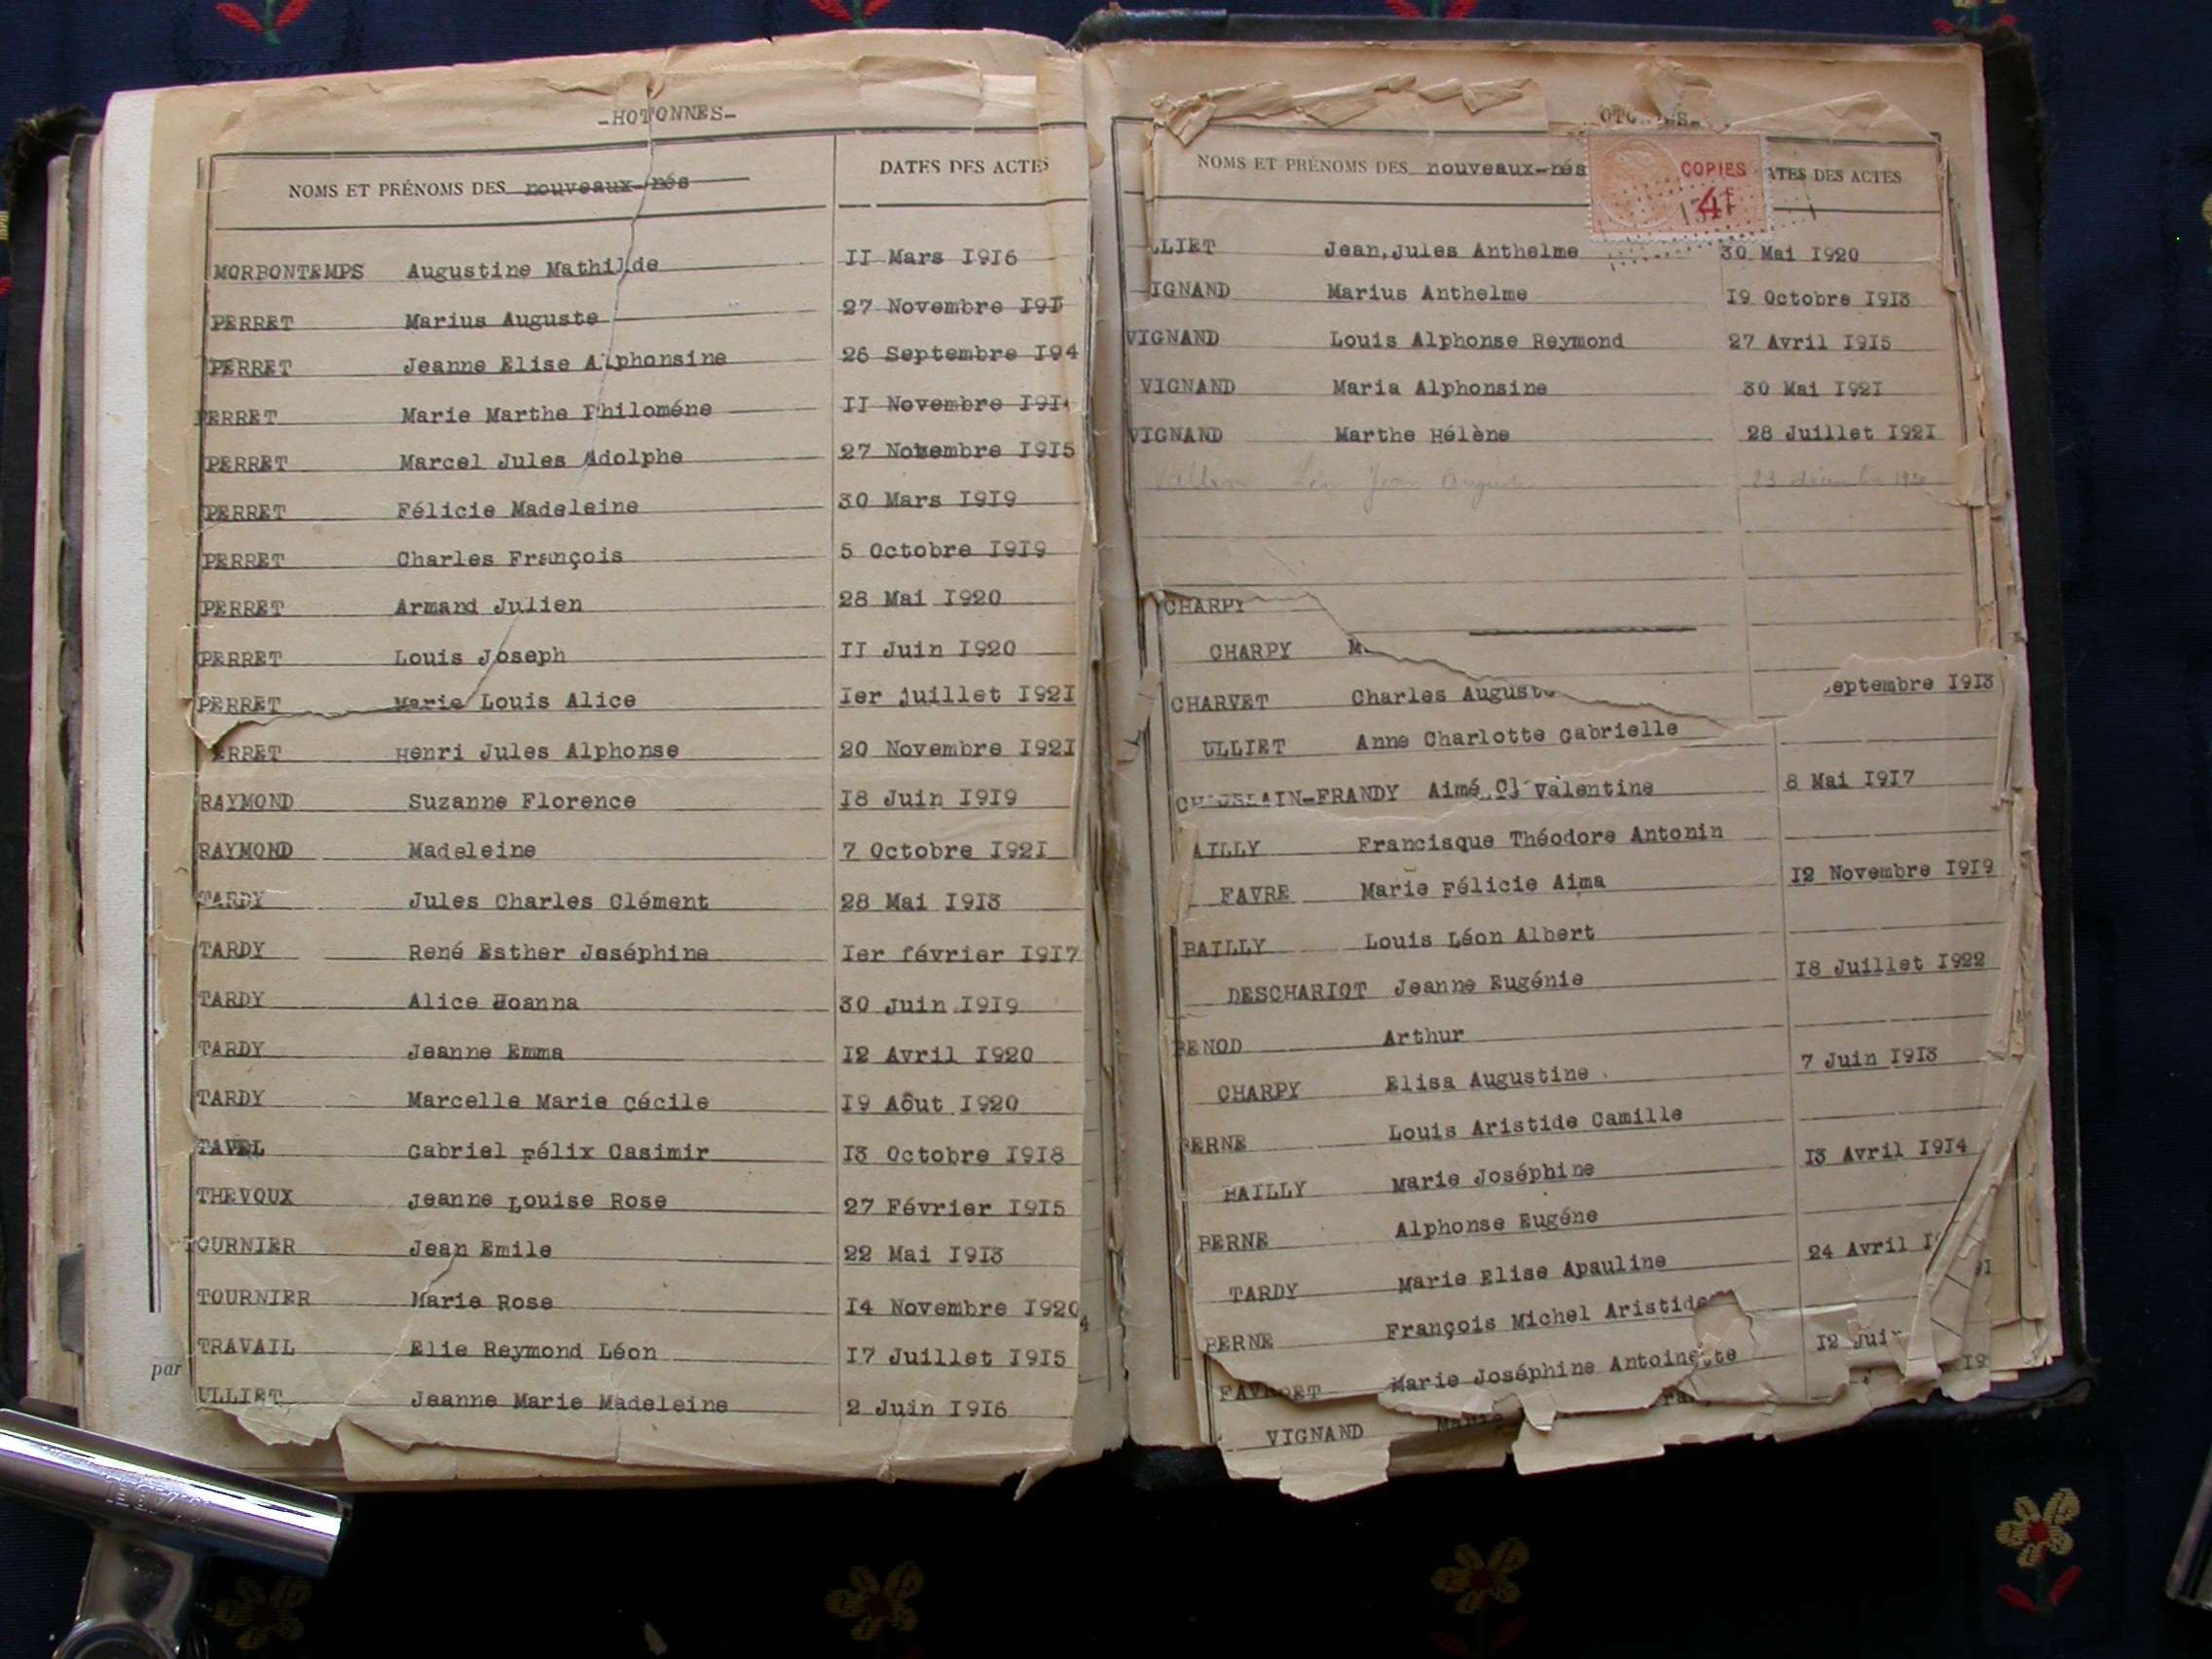 -HOTONNES-
NOMS ET PRÉNOMS DES nouveaux-nés DATES DES ACTES
MORBONTEMPS Augustine Mathilde II Mars I9I6
PERRET Marius Auguste 27 Novembre
PERRET Jeanne Elise Alphonsine 26 Septembre
PERRET Marie Marthe Philoméne II Novembre
PERRET Marcel Jules Adolphe 27 Novembre I9I5
PERRET Félicie Madeleine 30 Mars I9I9
PERRET Charles François 5 Octobre I9I9
PERRET Armand Julien 28 Mai I920
PERRET Louis Joseph II Juin I920
PERRET Marie Louis Alice Ier juillet I92I
ERRET Henri Jules Alphonse 20 Novembre I92I
RAYMOND Suzanne Florence I8 Juin I9I9
RAYMOND Madeleine 7 Octobre I92I
TARDY Jules Charles Clément 28 Mai I9I3
TARDY René Esther Joséphine Ier février I9I7
TARDY Alice Hoanna 30 Juin I9I9
TARDY Jeanne Emma I2 Avril I920
TARDY Marcelle Marie Cécile I9 Aôut I920
TAVEL Gabriel Félix Casimir I3 Octobre I9I8
THEVOUX Jeanne Louise Rose 27 Février I9I5
OURNIER Jean Emile 22 Mai I9I3
TOURNIER Marie Rose I4 Novembre I920
TRAVAIL Elie Reymond Léon I7 Juillet I9I5
ULLIET Jeanne Marie Madeleine 2 Juin I9I6
par
NOMS ET PRÉNOMS DES nouveaux-nés ATES DES ACTES
COPIES
4F
LLIET Jean,Jules Anthelme 30 Mai I920
IGNAND Marius Anthelme I9 Octobre I9I3
VIGNAND Louis Alphonse Reymond 27 Avril I9I5
VIGNAND Maria Alphonsine 30 Mai I92I
VIGNAND Marthe Hélène 28 Juillet I92I
Léon Jean 23
CHARPY
CHARPY M
CHARVET Charles Auguste eptembre I9I3
ULLIET Anne Charlotte Gabrielle
-FRANDY Aimé Valentine 8 Mai I9I7
AILLY Francisque Théodore Antonin
FAVRE Marie Félicie Aima I2 Novembre I9I9
BAILLY Louis Léon Albert
DESCHARIOT Jeanne Eugénie I8 Juillet I922
BENOD Arthur
CHARPY Elisa Augustine 7 Juin I9I3
BERNE Louis Aristide Camille
BAILLY Marie Joséphine I3 Avril I9I4
BERNE Alphonse Eugéne
TARDY Marie Elise Apauline 24 Avril
BERNE François Michel Aristide
Marie Joséphine Antoinette I2 Juin
VIGNAND Marie